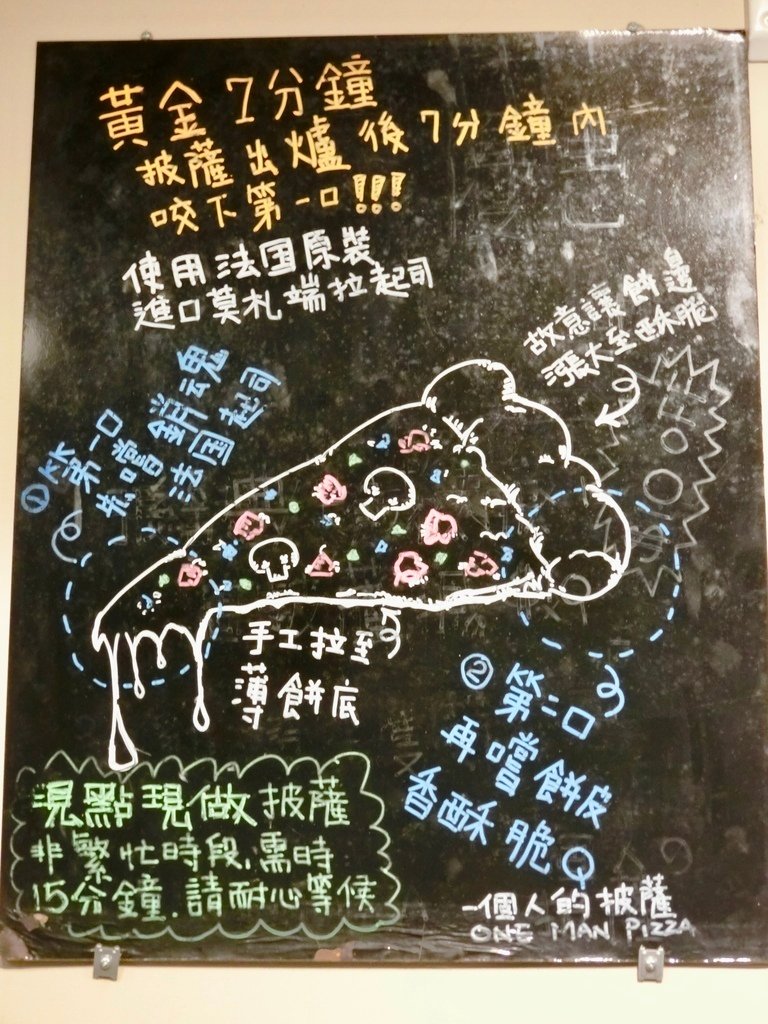 黃金7分鐘
披薩出爐後7分鐘內
咬下第一口!!!
使用法国原裝
進口莫札端拉起司
故意讓餅邊
漲大至酥脆
①第一口
先嚐銷云鬼
法国起司
手工拉至
薄餅底
②第二口
再嚐餅皮
香酥脆Q
現點現做披薩
非繁忙時段,需時
15分鐘.請耐心等候
一個人的披薩
ONE MAN PIZZA